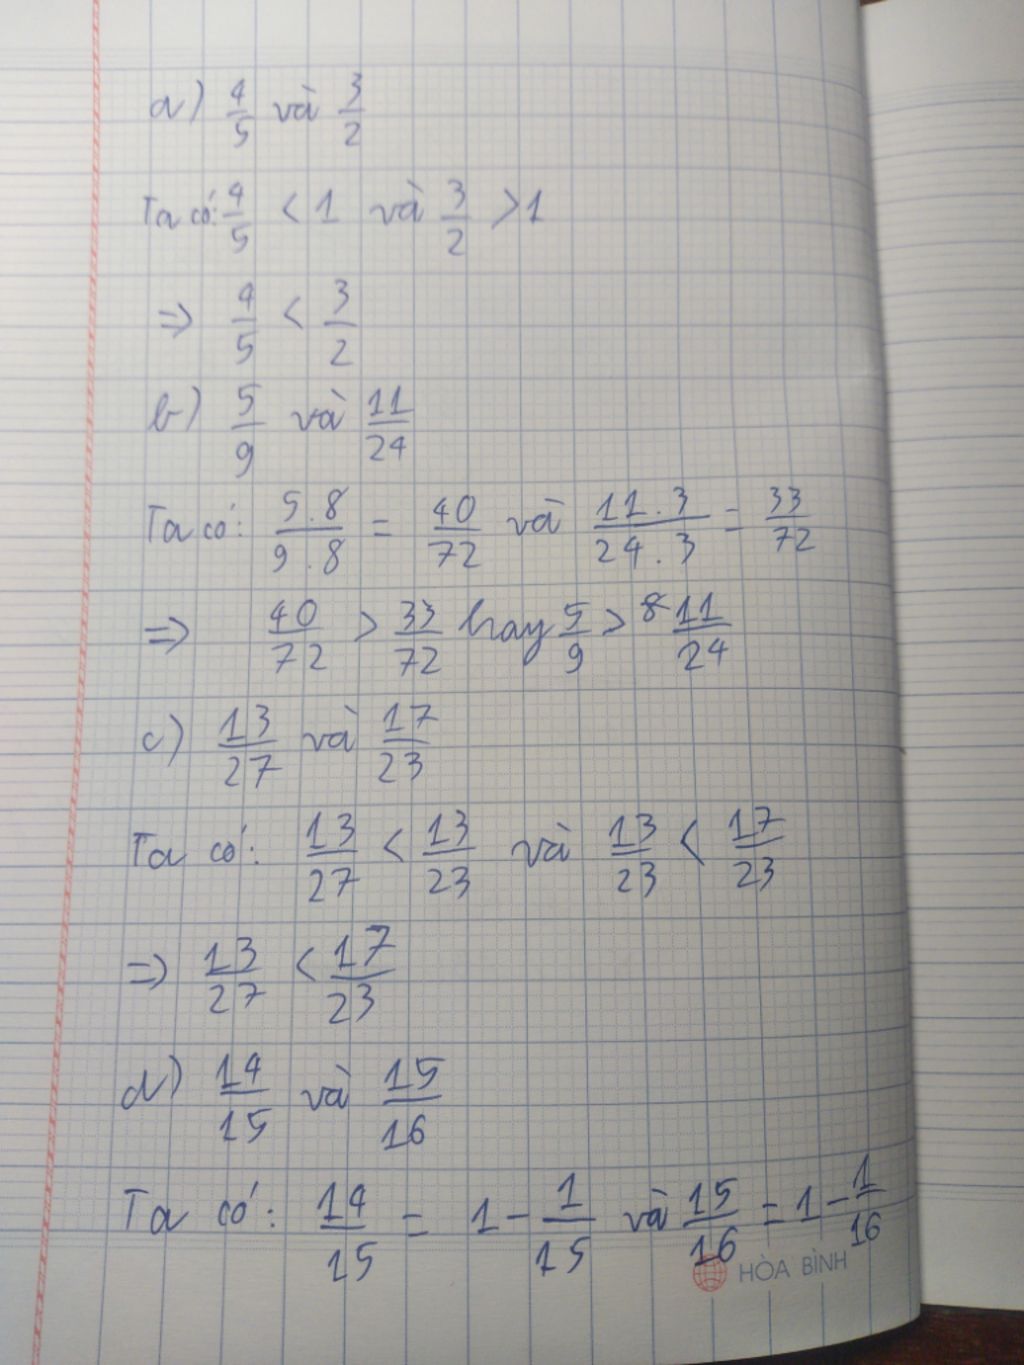 a) 4/5 và 3/2
Ta có: 4/5 < 1 và 3/2 > 1
=> 4/5 < 3/2
b) 5/9 và 11/24
Ta có: 5.8/9.8 = 40/72 và 11.3/24.3 = 33/72
=> 40/72 > 33/72 hay 5/9 > 11/24
c) 13/27 và 17/23
Ta có: 13/27 < 13/23 và 13/23 < 17/23
=> 13/27 < 17/23
d) 14/15 và 15/16
Ta có: 14/15 = 1 - 1/15 và 15/16 = 1 - 1/16
HÒA BÌNH